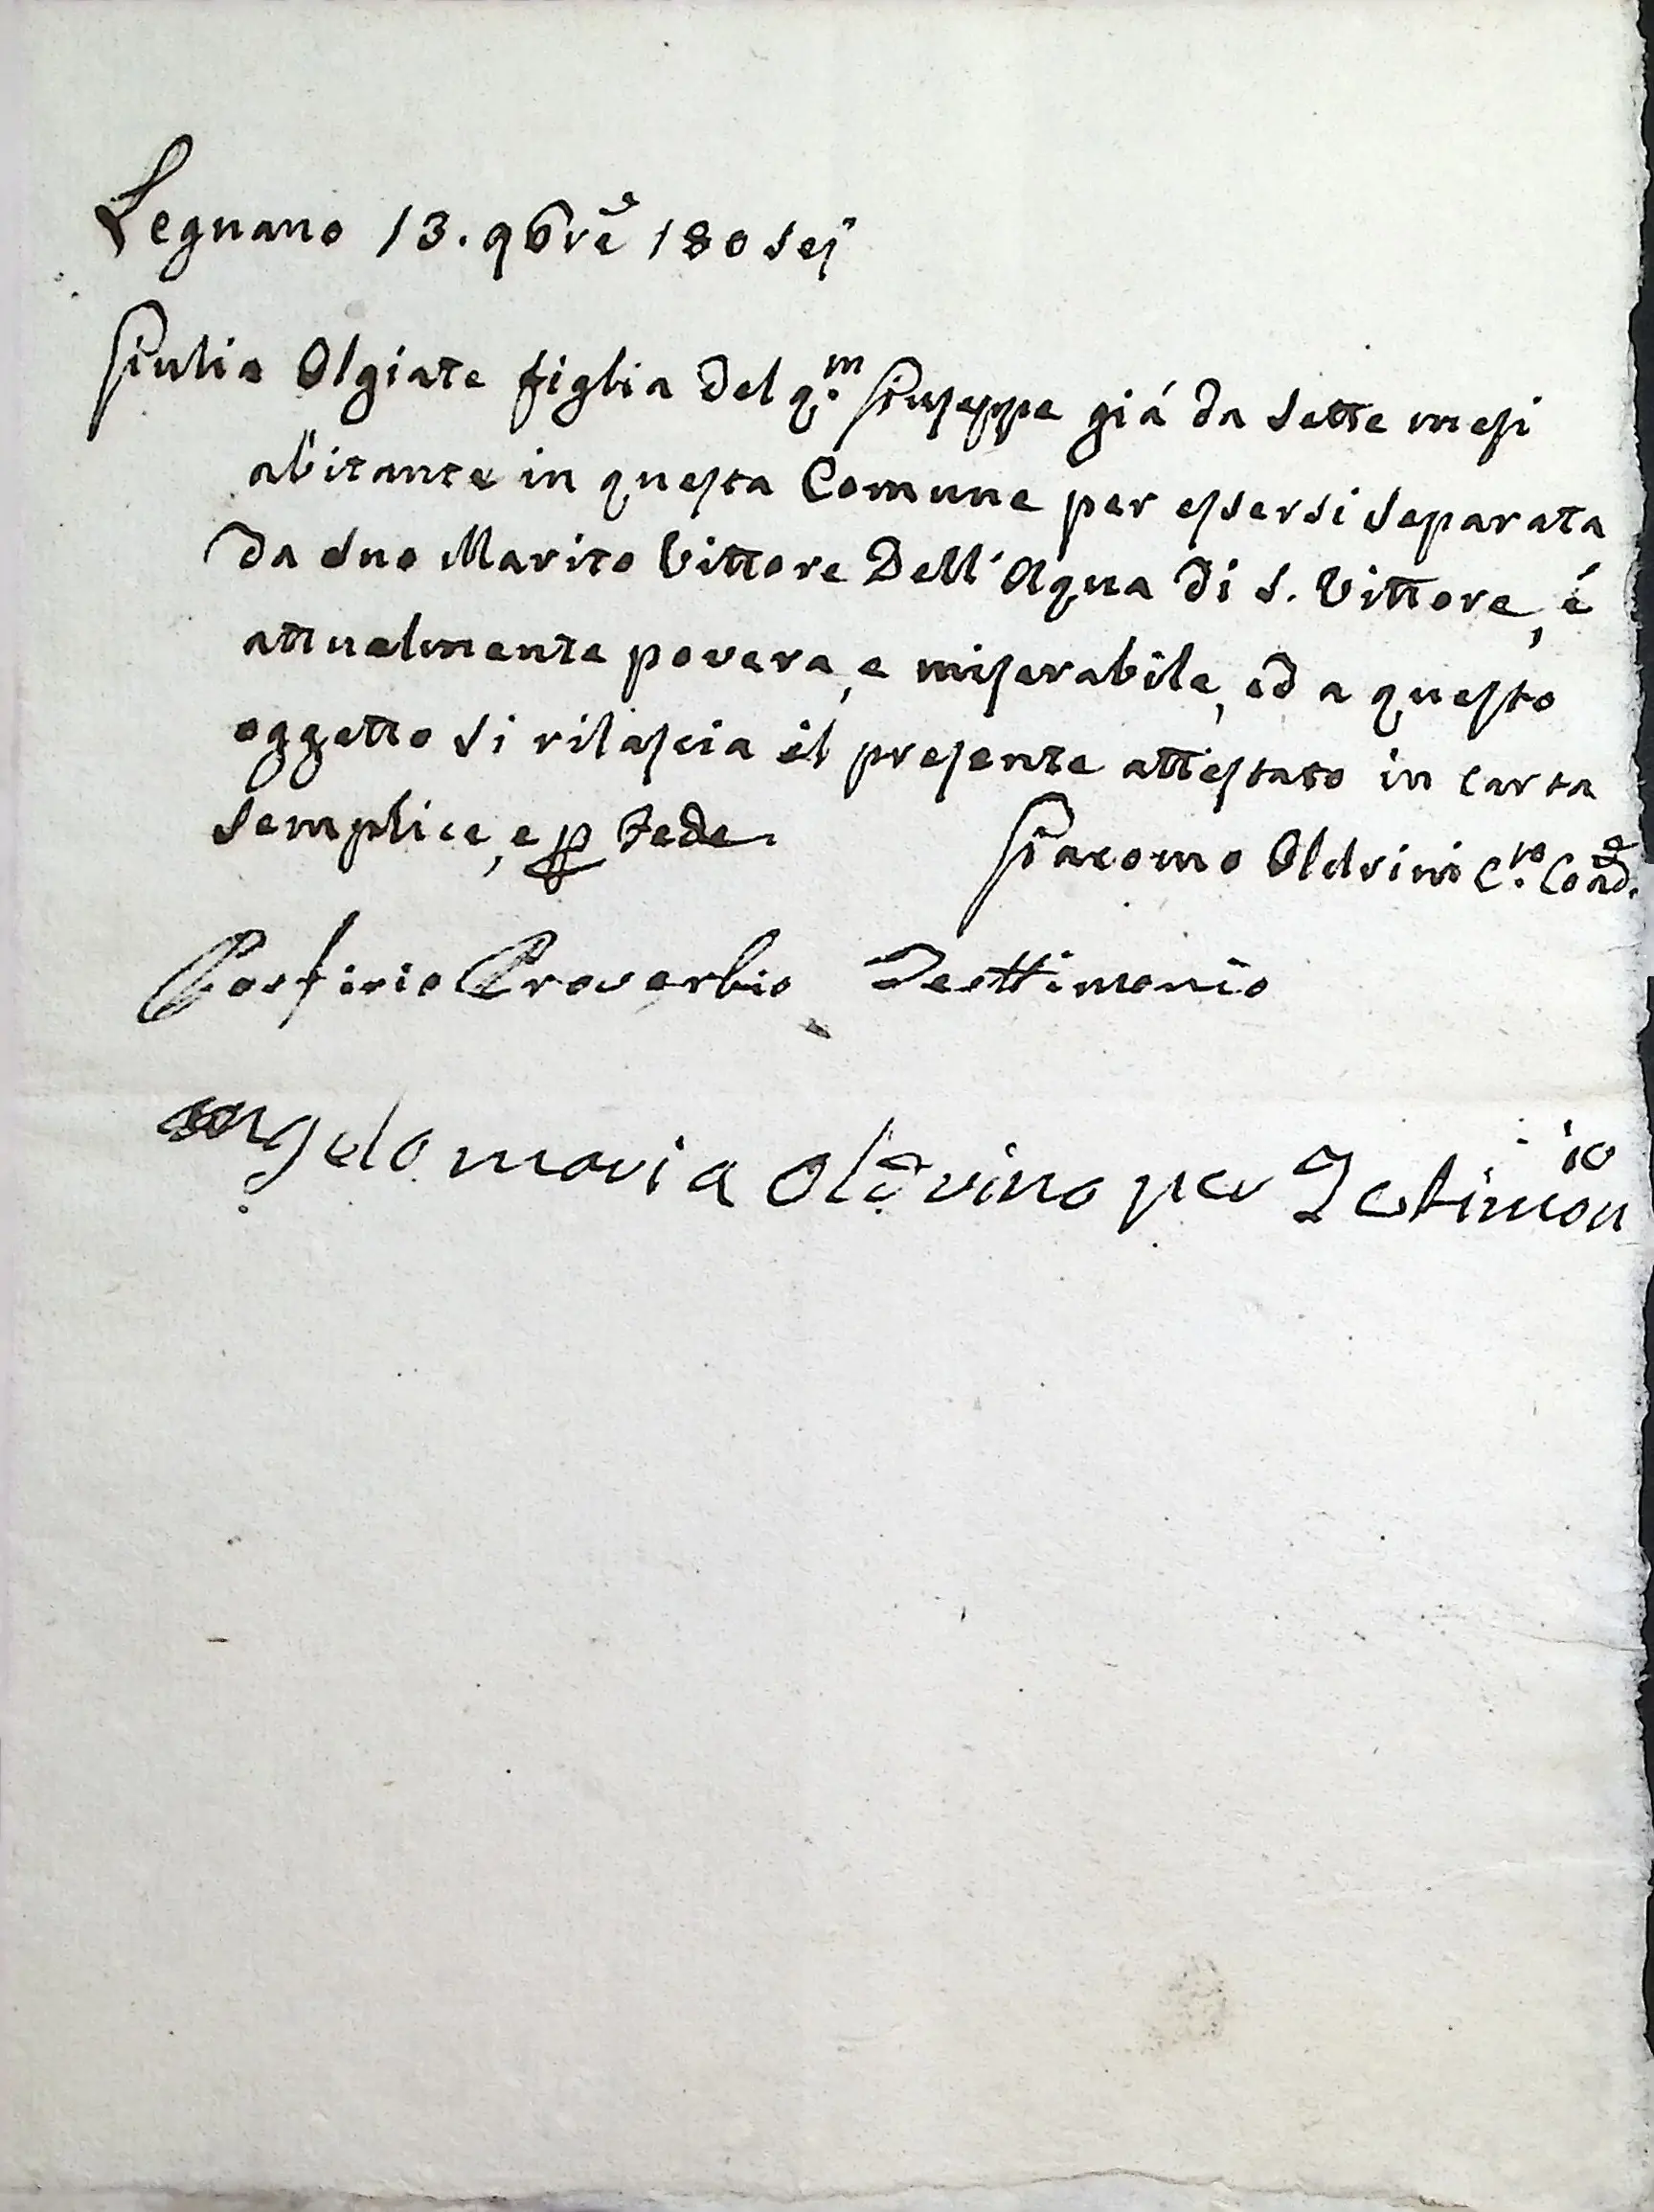 Legnano 13. 9bre 180sei
Giulia Olgiate figlia del q.m Giuseppe giá da sette mesi
abitante in questa Comune per essersi separata
da suo Marito Vittore Dell'Aqua di S. Vittore, é
attualmente povera, e miserabile, ed a questo
oggetto si rilascia il presente attestato in carta
semplice, e p fede.
Giacomo Oldrini C.ro Coad.e
Porfirio Proverbio Testtimonio
angelo maria Oldrino per Testimonio